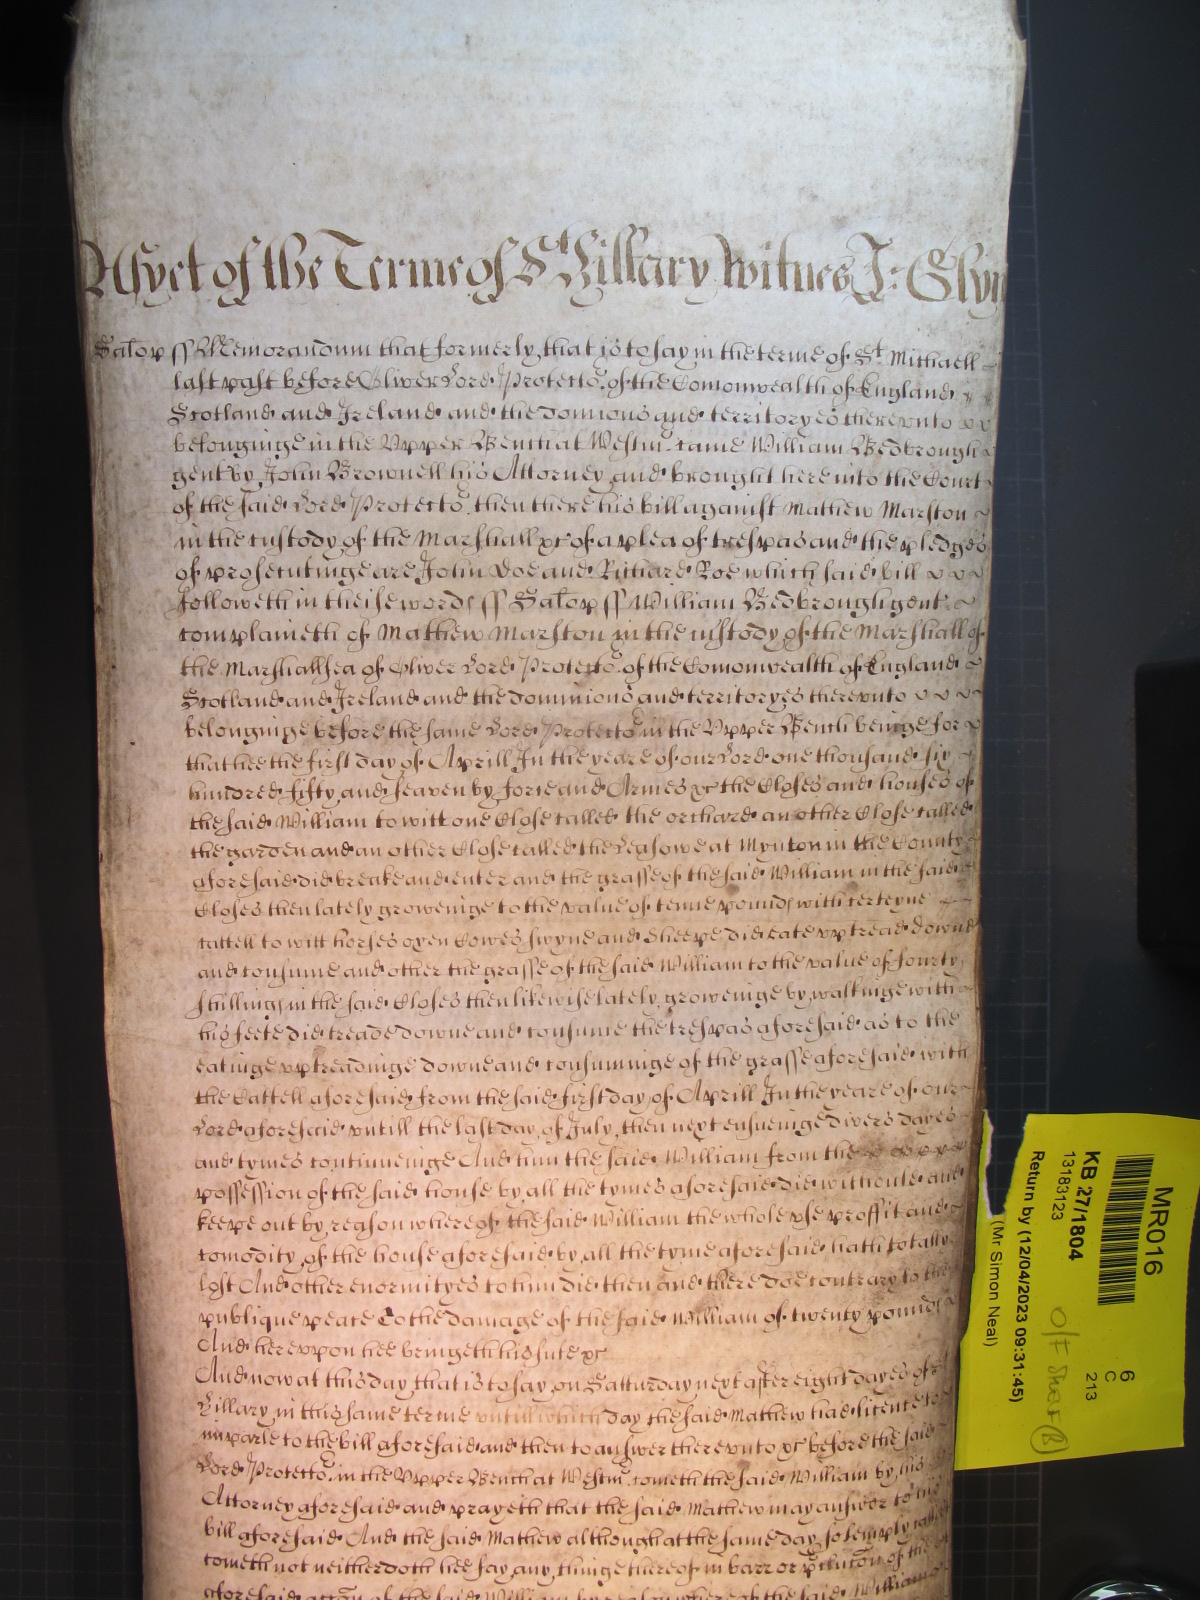 As yet of the Terme of St Hillary Witnes J: Glyn
Salop ss Memorandum that formerly, that is to say in the terme of St Michaell
last past before Oliver Lord Protector of the Comonwealth of England
Scotland and Ireland and the dominions and territoryes therevnto
belonginge in the Vpper Bench at Westmr came William Bedbrough
gent by John Brownell his Attorney and brought here into the Court
of the said Lord Protector then there his bill against Mathew Marston
in the custody of the Marshall &c of a plea of trespas and the pledges
of prosecutinge are John Doe and Richard Roe which said bill
followeth in theise words ss Salop ss William Bedbrough gent
complaineth of Mathew Marston in the custody of the Marshall of
the Marshallsea of Oliver Lord Protector of the Comonwealth of England
Scotland and Ireland and the dominions and territoryes therevnto
belonginge before the same Lord Protector in the Vpper Bench beinge for
that hee the first day of Aprill In the yeare of our Lord one thousand six
hundred fifty and seaven by force and Armes &c the Closes and houses of
the said William to witt one Close called the orchard an other Close called
the garden and an other Close called the Leasowe at Mynton in the County
aforesaid did breake and enter and the grasse of the said William in the said
Closes then lately groweinge to the value of tenne pounds with certeyne
cattell to witt horses oxen Cowes swyne and Sheepe did eate vp tread downe
and consume and other the grasse of the said William to the value of fourty
shillings in the said Closes then likewise lately groweinge by walkinge with
his feete did treade downe and consume the trespas aforesaid as to the
eatinge vp treadinge downe and consuminge of the grasse aforesaid with
the Cattell aforesaid from the said first day of Aprill In the yeare of our
Lord aforesaid vntill the last day of July then next ensueinge divers dayes
and tymes continueinge And him the said William from the
possession of the said house by all the tymes aforesaid did withhold and
keepe out by reason whereof the said William the whole vse proffit and
comodity of the house aforesaid by all the tyme aforesaid hath totally
lost And other enormityes to him did then and there doe contrary to the
publique peace To the damage of the said William of twenty pounds
And herevpon hee bringeth his sute &c
And now at this day that is to say on Satturday next after eight dayes of St
Hillary in this same terme vntill which day the said Mathew had licence to
imparle to the bill aforesaid and then to answer therevnto &c before the said
Lord Protector in the Vpper Bench at Westmr cometh the said William by his
Attorney aforesaid and prayeth that the said Mathew may answer to the
bill aforesaid And the said Mathew although at the same day solemply called
cometh not neither doth hee say any thinge thereof in barr or of the
aforesaid action of the said William by reason whereof the said William
MR016
6
C
213
KB 27/1804
13183123
Return by (12/04/2023 09:31:45)
(Mr Simon Neal)
O/F Shelf (B)